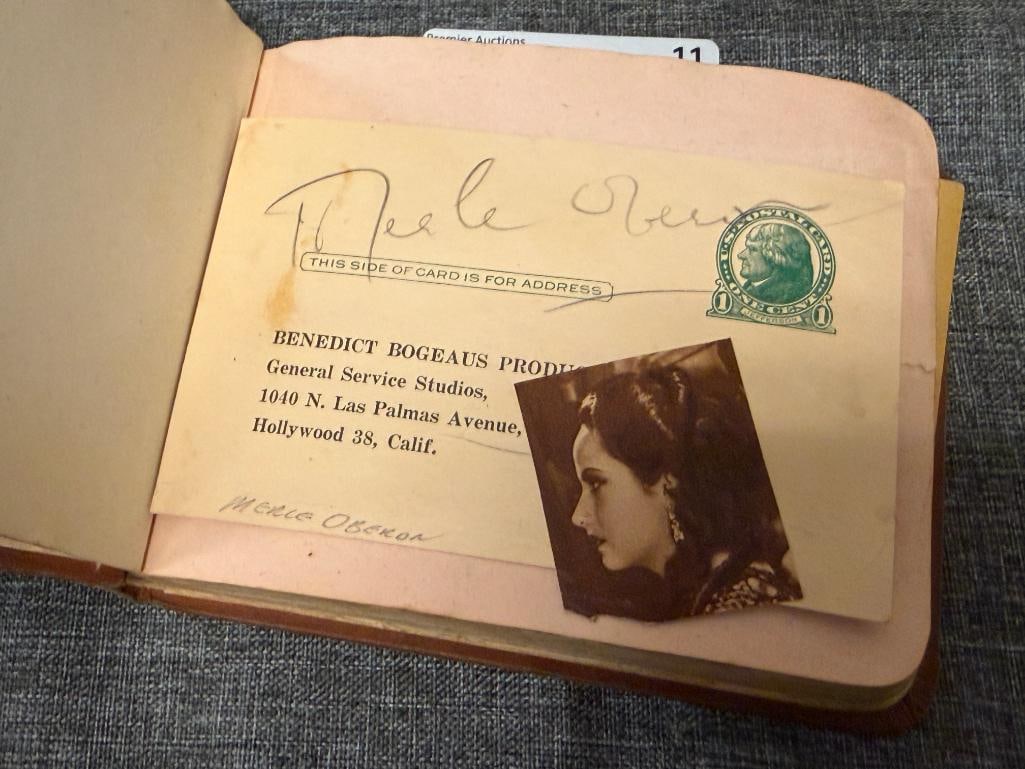 Premier Auctions
11
Merle Oberon
THIS SIDE OF CARD IS FOR ADDRESS
U.S. POSTAL CARD
ONE CENT
1 JEFFERSON 1
BENEDICT BOGEAUS
General Service Studios,
1040 N. Las Palmas Avenue,
Hollywood 38, Calif.
MERLE OBERON